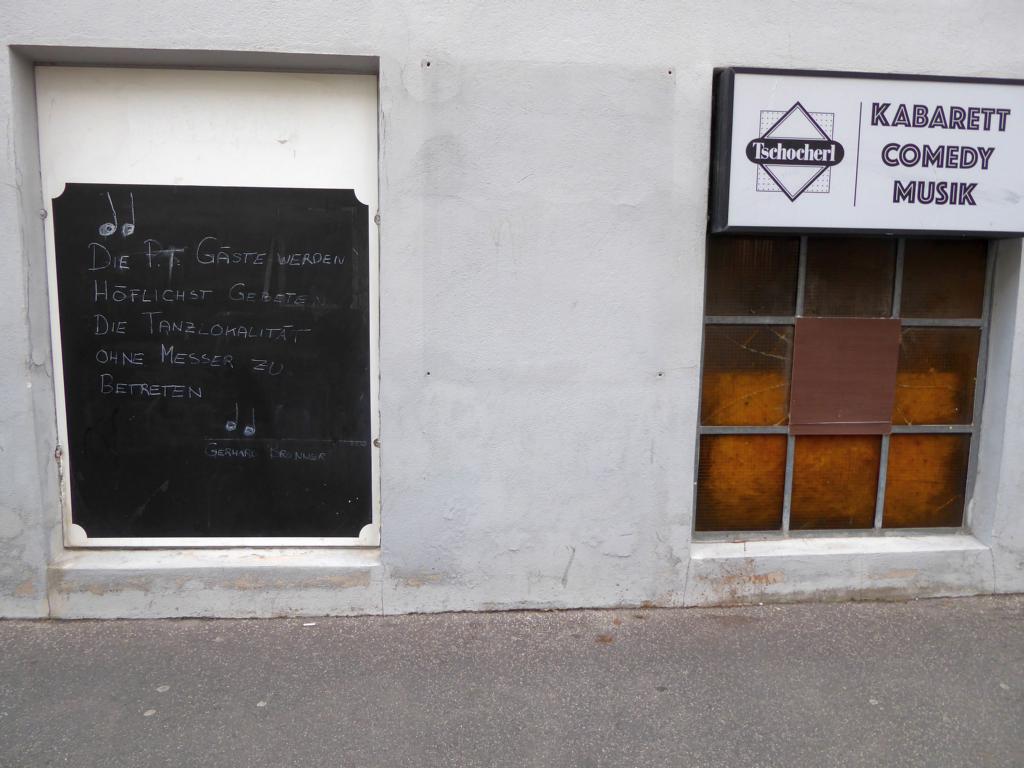 Die P.T. Gäste werden
Höflichst Gebeten
Die Tanzlokalität
ohne Messer zu
Betreten
Gerhard Bronner
Tschocherl
KABARETT
COMEDY
MUSIK